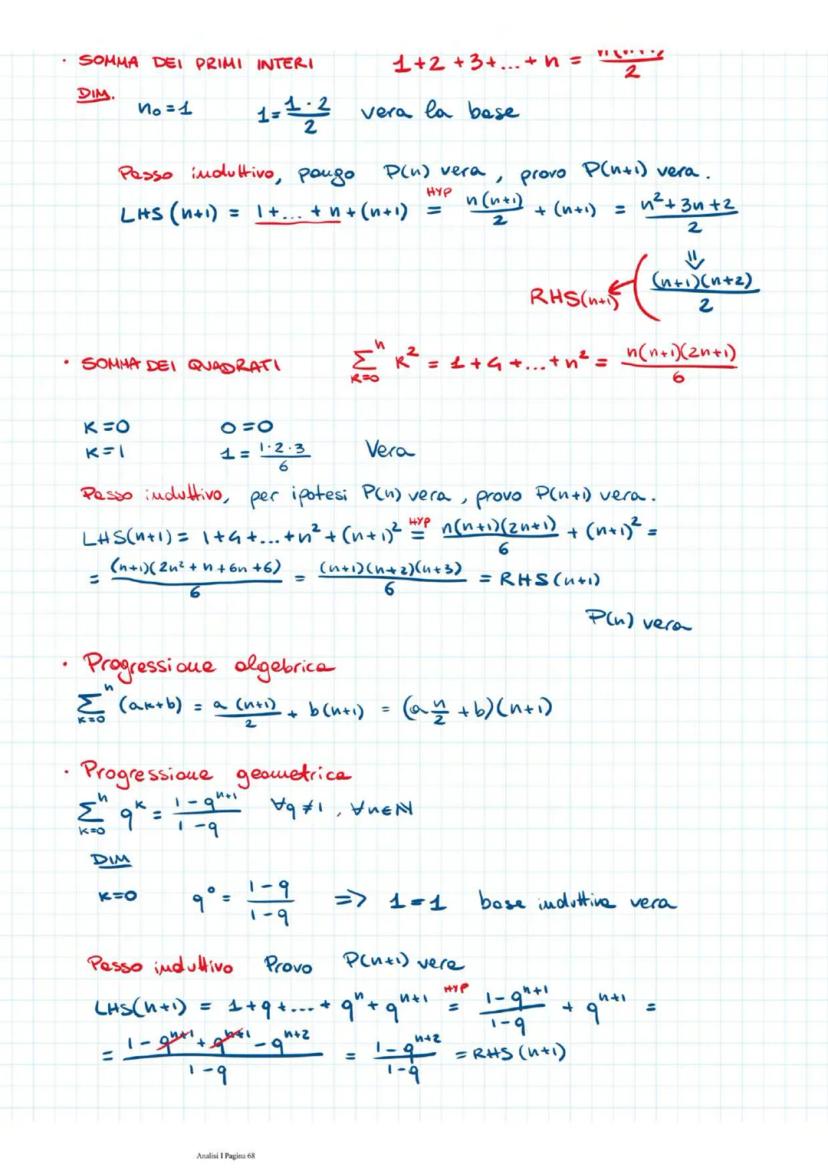 · SOMMA DEI PRIMI INTERI 1+2+3+...+n = n(n+1)/2
DIM.
n₀=1 1 = 1·2/2 vera la base
Passo induttivo, pongo P(n) vera, provo P(n+1) vera.
LHS(n+1) = 1+...+n+(n+1) =^HYP n(n+1)/2 + (n+1) = n²+3n+2/2
=
RHS(n+1) ← (n+1)(n+2)/2
· SOMMA DEI QUADRATI Σ_{K=0}^n K² = 1+4+...+n² = n(n+1)(2n+1)/6
K=0 0=0
K=1 1 = 1·2·3/6 Vera
Passo induttivo, per ipotesi P(n) vera, provo P(n+1) vera.
LHS(n+1) = 1+4+...+n²+(n+1)² =^HYP n(n+1)(2n+1)/6 + (n+1)² =
= (n+1)(2n²+n+6n+6)/6 = (n+1)(n+2)(n+3)/6 = RHS(n+1)
P(n) vera
· Progressione algebrica
Σ_{K=0}^n (ak+b) = a(n+1)/2 + b(n+1) = (a n/2 + b)(n+1)
· Progressione geometrica
Σ_{K=0}^n q^K = 1-q^{n+1}/1-q ∀q≠1, ∀n∈ℕ
DIM
K=0 q⁰ = 1-q/1-q => 1=1 base induttiva vera
Passo induttivo Provo P(n+1) vera
LHS(n+1) = 1+q+...+q^n+q^{n+1} =^HYP 1-q^{n+1}/1-q + q^{n+1} =
= 1-q^{n+1}+q^{n+1}-q^{n+2}/1-q = 1-q^{n+2}/1-q = RHS(n+1)
Analisi I Pagina 68